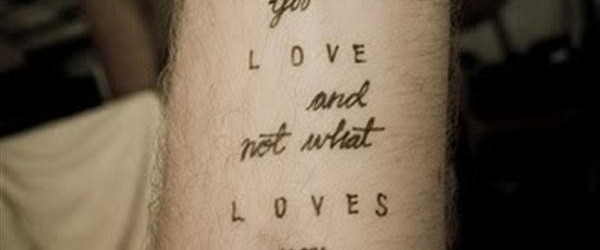 you
L O V E
and
not what
L O V E S